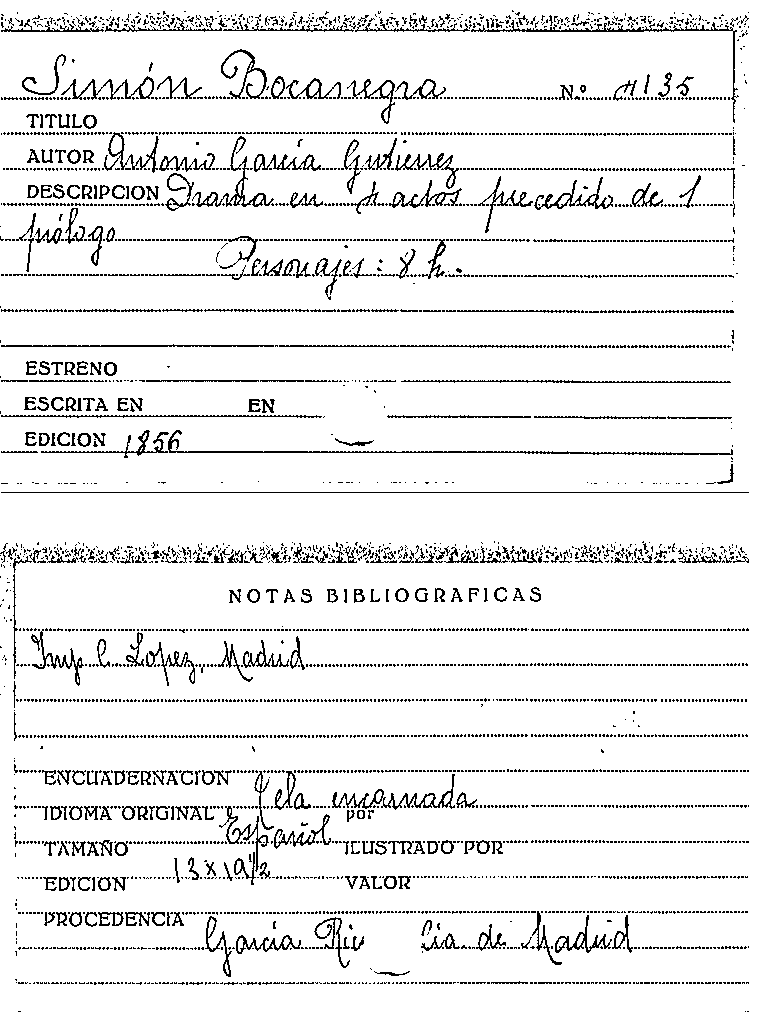 Simón Bocanegra Nº 4135
TITULO
AUTOR Antonio García Gutierrez
DESCRIPCION Drama en 4 actos precedido de 1
prólogo
Personajes: 8 h.
ESTRENO
ESCRITA EN EN
EDICION 1856
NOTAS BIBLIOGRAFICAS
Imp C. Lopez, Madrid
ENCUADERNACION Tela encarnada
IDIOMA ORIGINAL Español por
TAMAÑO 13 x 19 1/2 ILUSTRADO POR
EDICION VALOR
PROCEDENCIA García Ric de Madrid